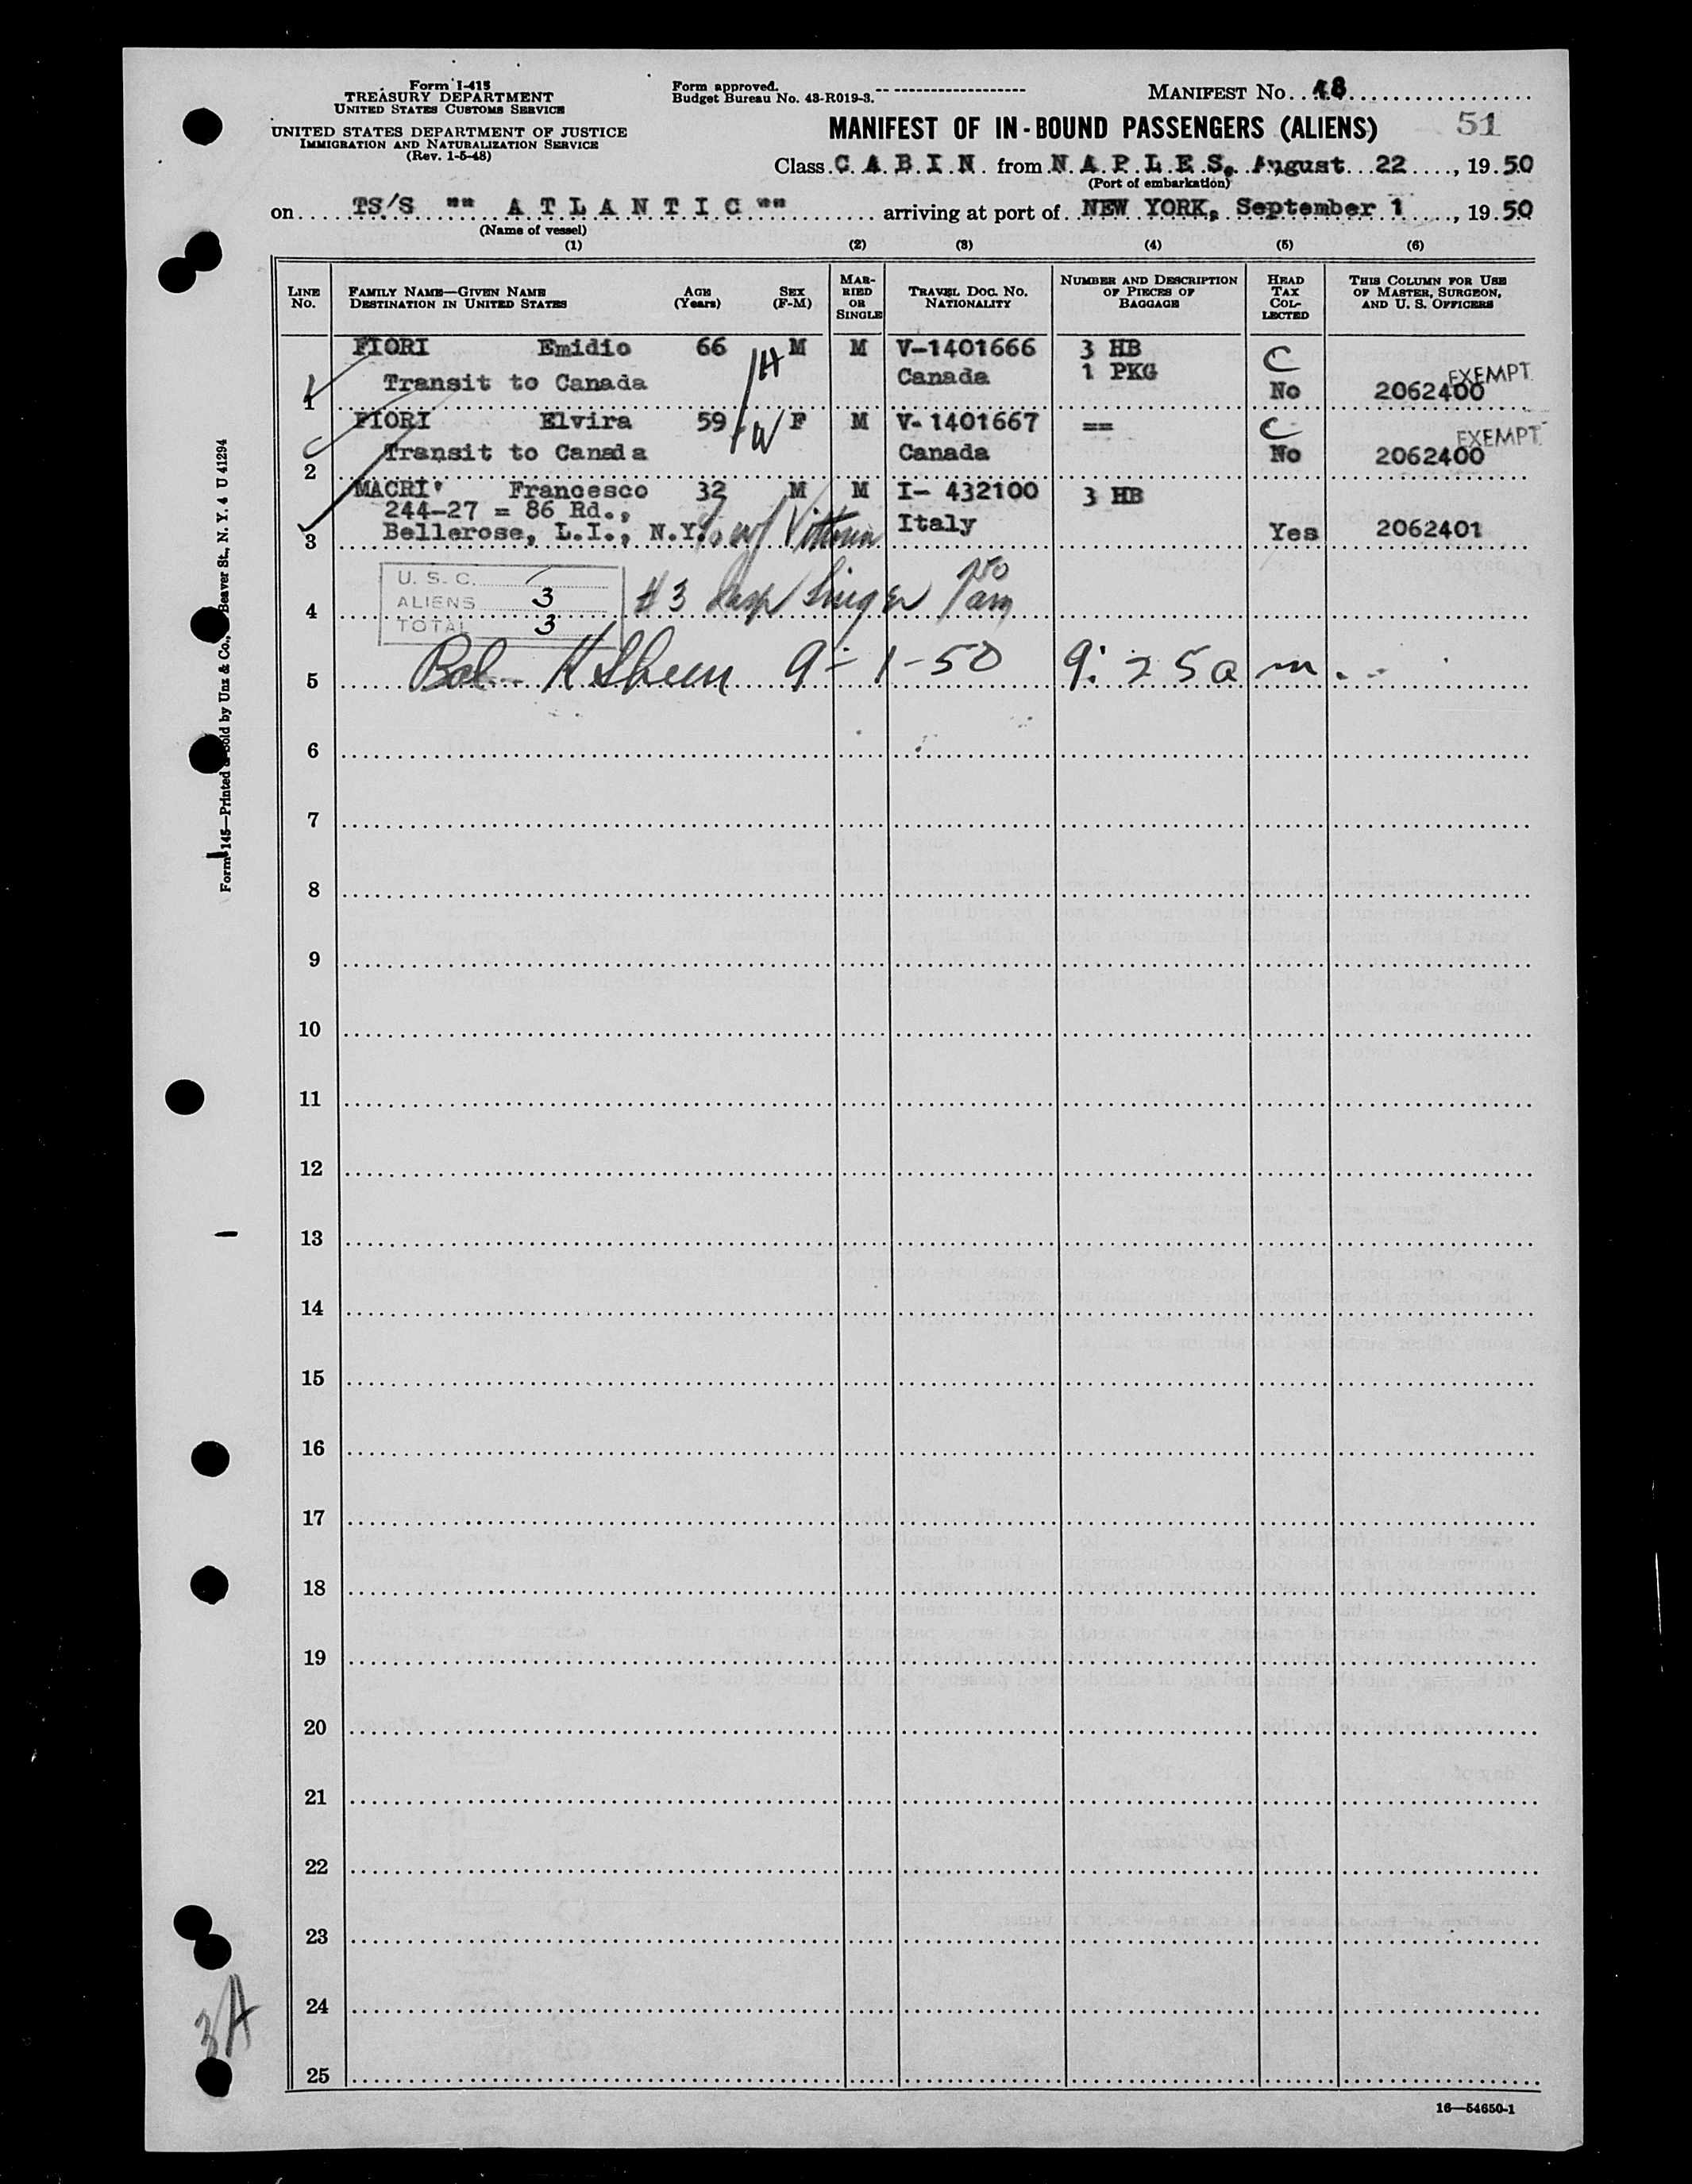 Form I-415
TREASURY DEPARTMENT
UNITED STATES CUSTOMS SERVICE
UNITED STATES DEPARTMENT OF JUSTICE
IMMIGRATION AND NATURALIZATION SERVICE
(Rev. 1-5-48)
Form approved.
Budget Bureau No. 43-R019-3.
MANIFEST No. 48
MANIFEST OF IN-BOUND PASSENGERS (ALIENS) 51
Class CABIN from NAPLES, August 22, 1950
(Port of embarkation)
on TS/S "" ATLANTIC "" arriving at port of NEW YORK, September 1, 1950
(Name of vessel)
(1) (2) (3) (4) (5) (6)
LINE No. FAMILY NAME—GIVEN NAME DESTINATION IN UNITED STATES AGE (Years) SEX (F-M) MARRIED OR SINGLE TRAVEL DOC. NO. NATIONALITY NUMBER AND DESCRIPTION OF PIECES OF BAGGAGE HEAD TAX COLLECTED THIS COLUMN FOR USE OF MASTER, SURGEON, AND U. S. OFFICERS
FIORI Emidio 66 H M M V-1401666 3 HB C
Transit to Canada Canada 1 PKG EXEMPT
1 No 2062400
FIORI Elvira 59 W F M V-1401667 == C
Transit to Canada Canada EXEMPT
2 No 2062400
MACRI' Francesco 32 M M I- 432100 3 HB
244-27 = 86 Rd.,
3 Bellerose, L.I., N.Y. Italy Yes 2062401
U. S. C.
4 ALIENS 3 #3
TOTAL 3
5 9-1-50 9:25 am.
6
7
8
9
10
11
12
13
14
15
16
17
18
19
20
21
22
23
24
25
16—54650-1
Form 145—Printed & Sold by Unz & Co., Beaver St., N. Y. 4 U 41294
3A